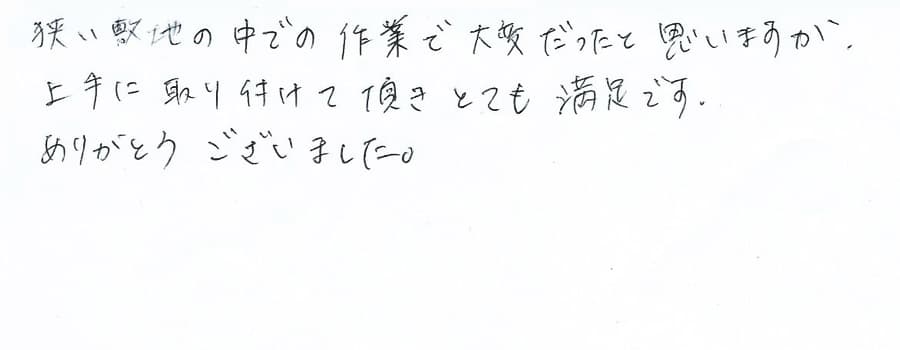 狭い敷地の中での作業で大変だったと思いますが、
上手に取り付けて頂きとても満足です。
ありがとうございました。